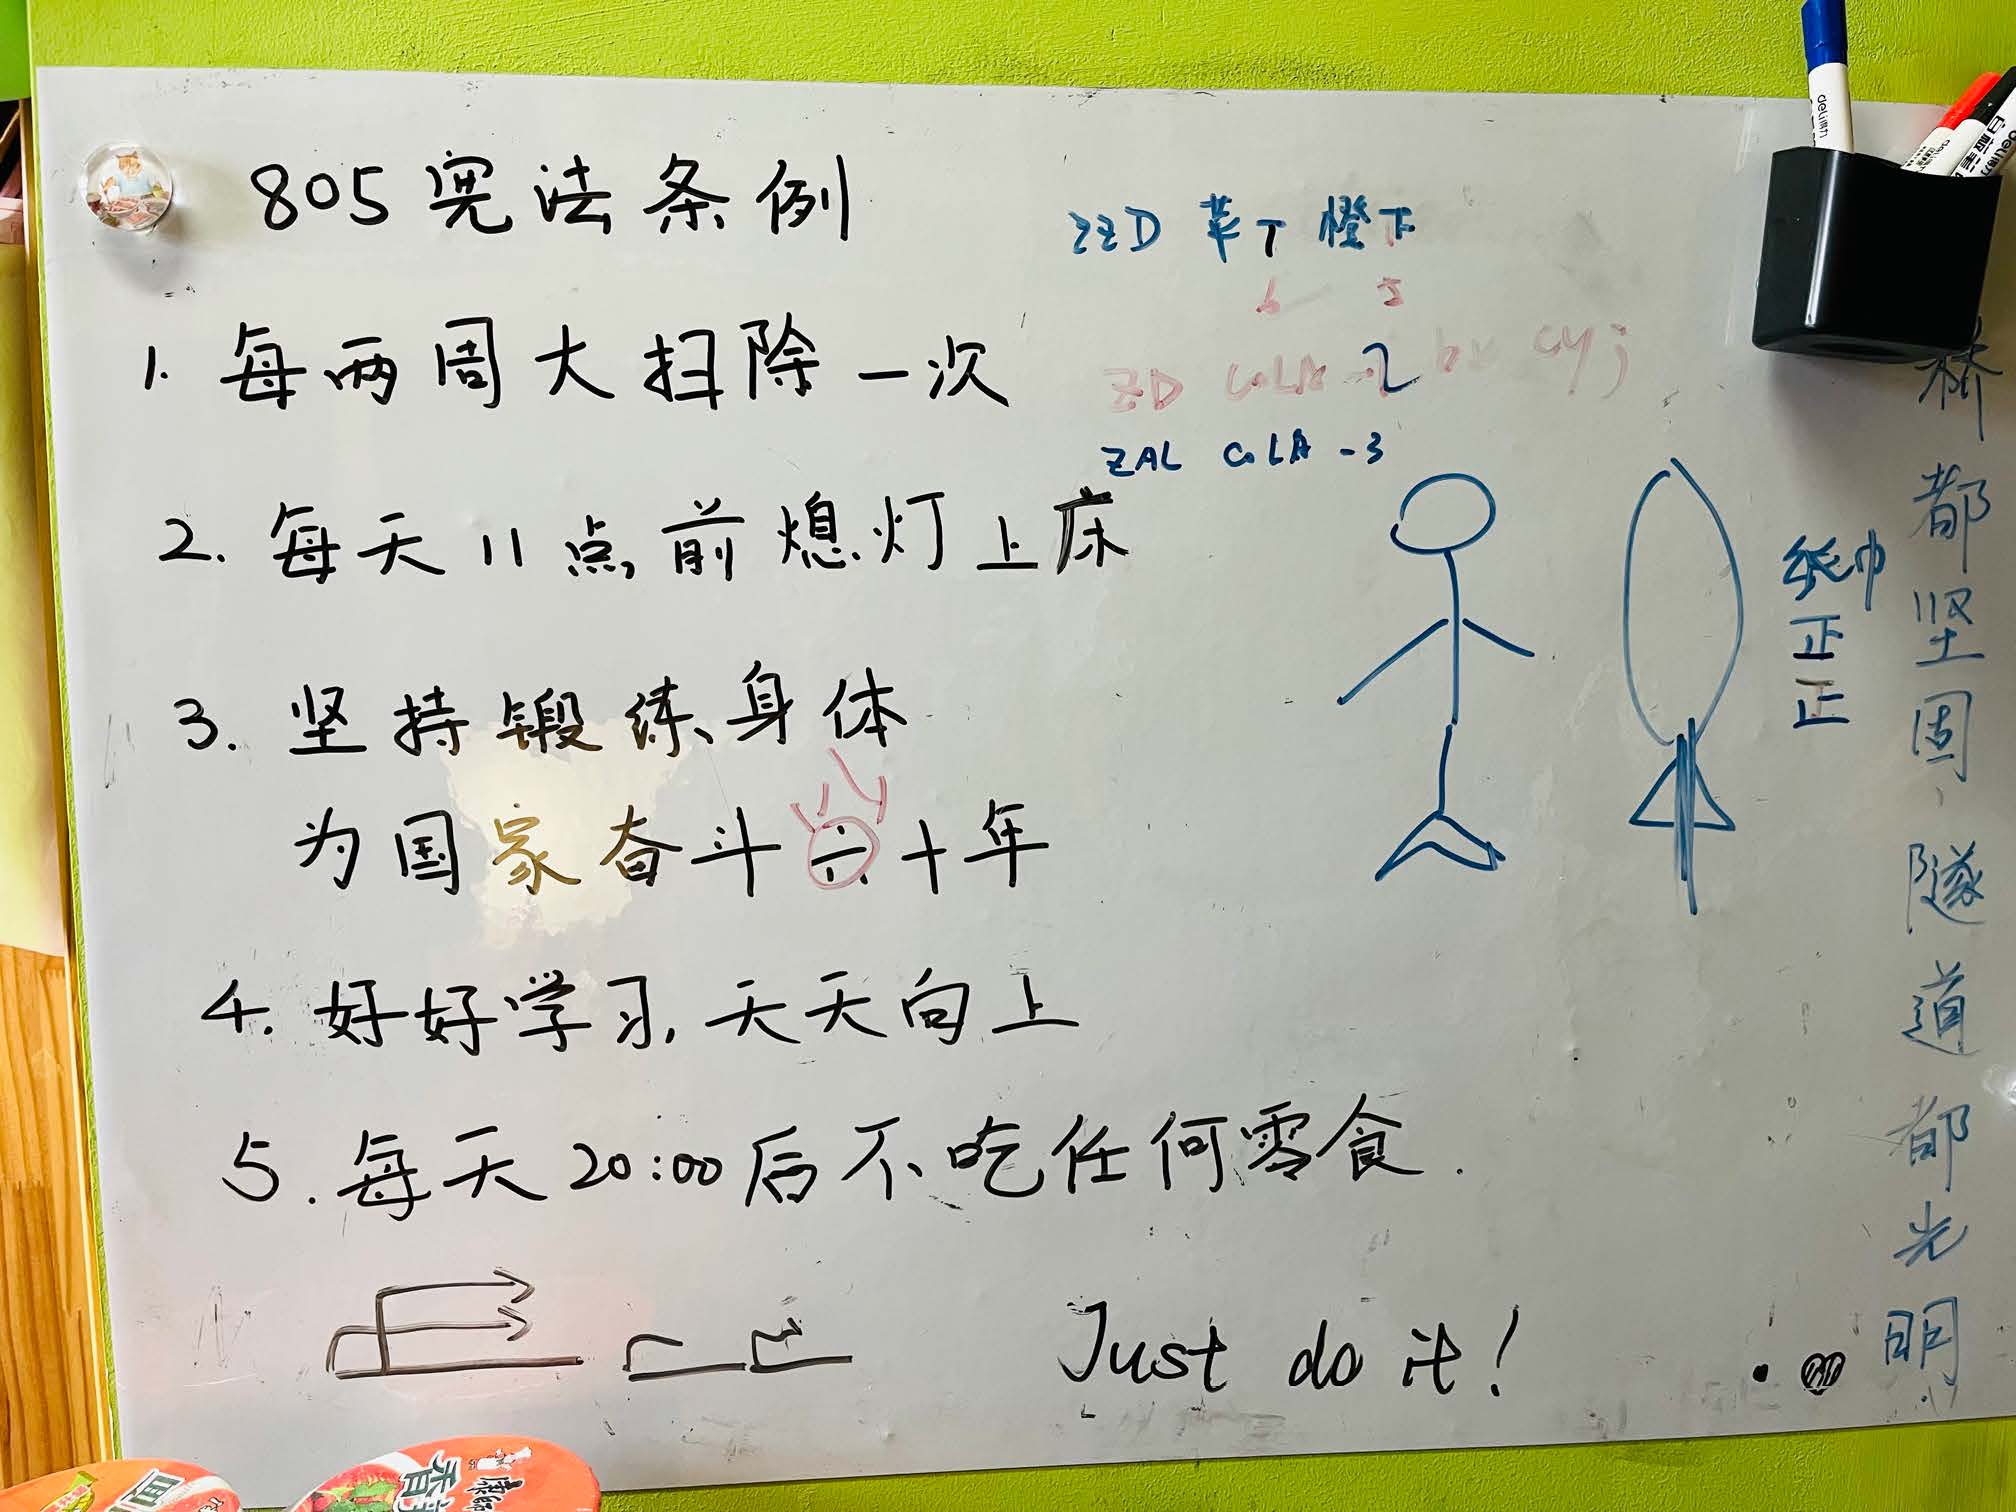 805宪法条例
1. 每两周大扫除一次
2. 每天11点前熄灯上床
3. 坚持锻炼身体
为国家奋斗六十年
4. 好好学习,天天向上
5. 每天20:00后不吃任何零食.
Just do it!
ZZD 苹 T 橙 下
6 5
ZD COLA -2 bx cyj
ZAL COLA -3
纸巾
正
正
桥都坚固,隧道都光明
deli